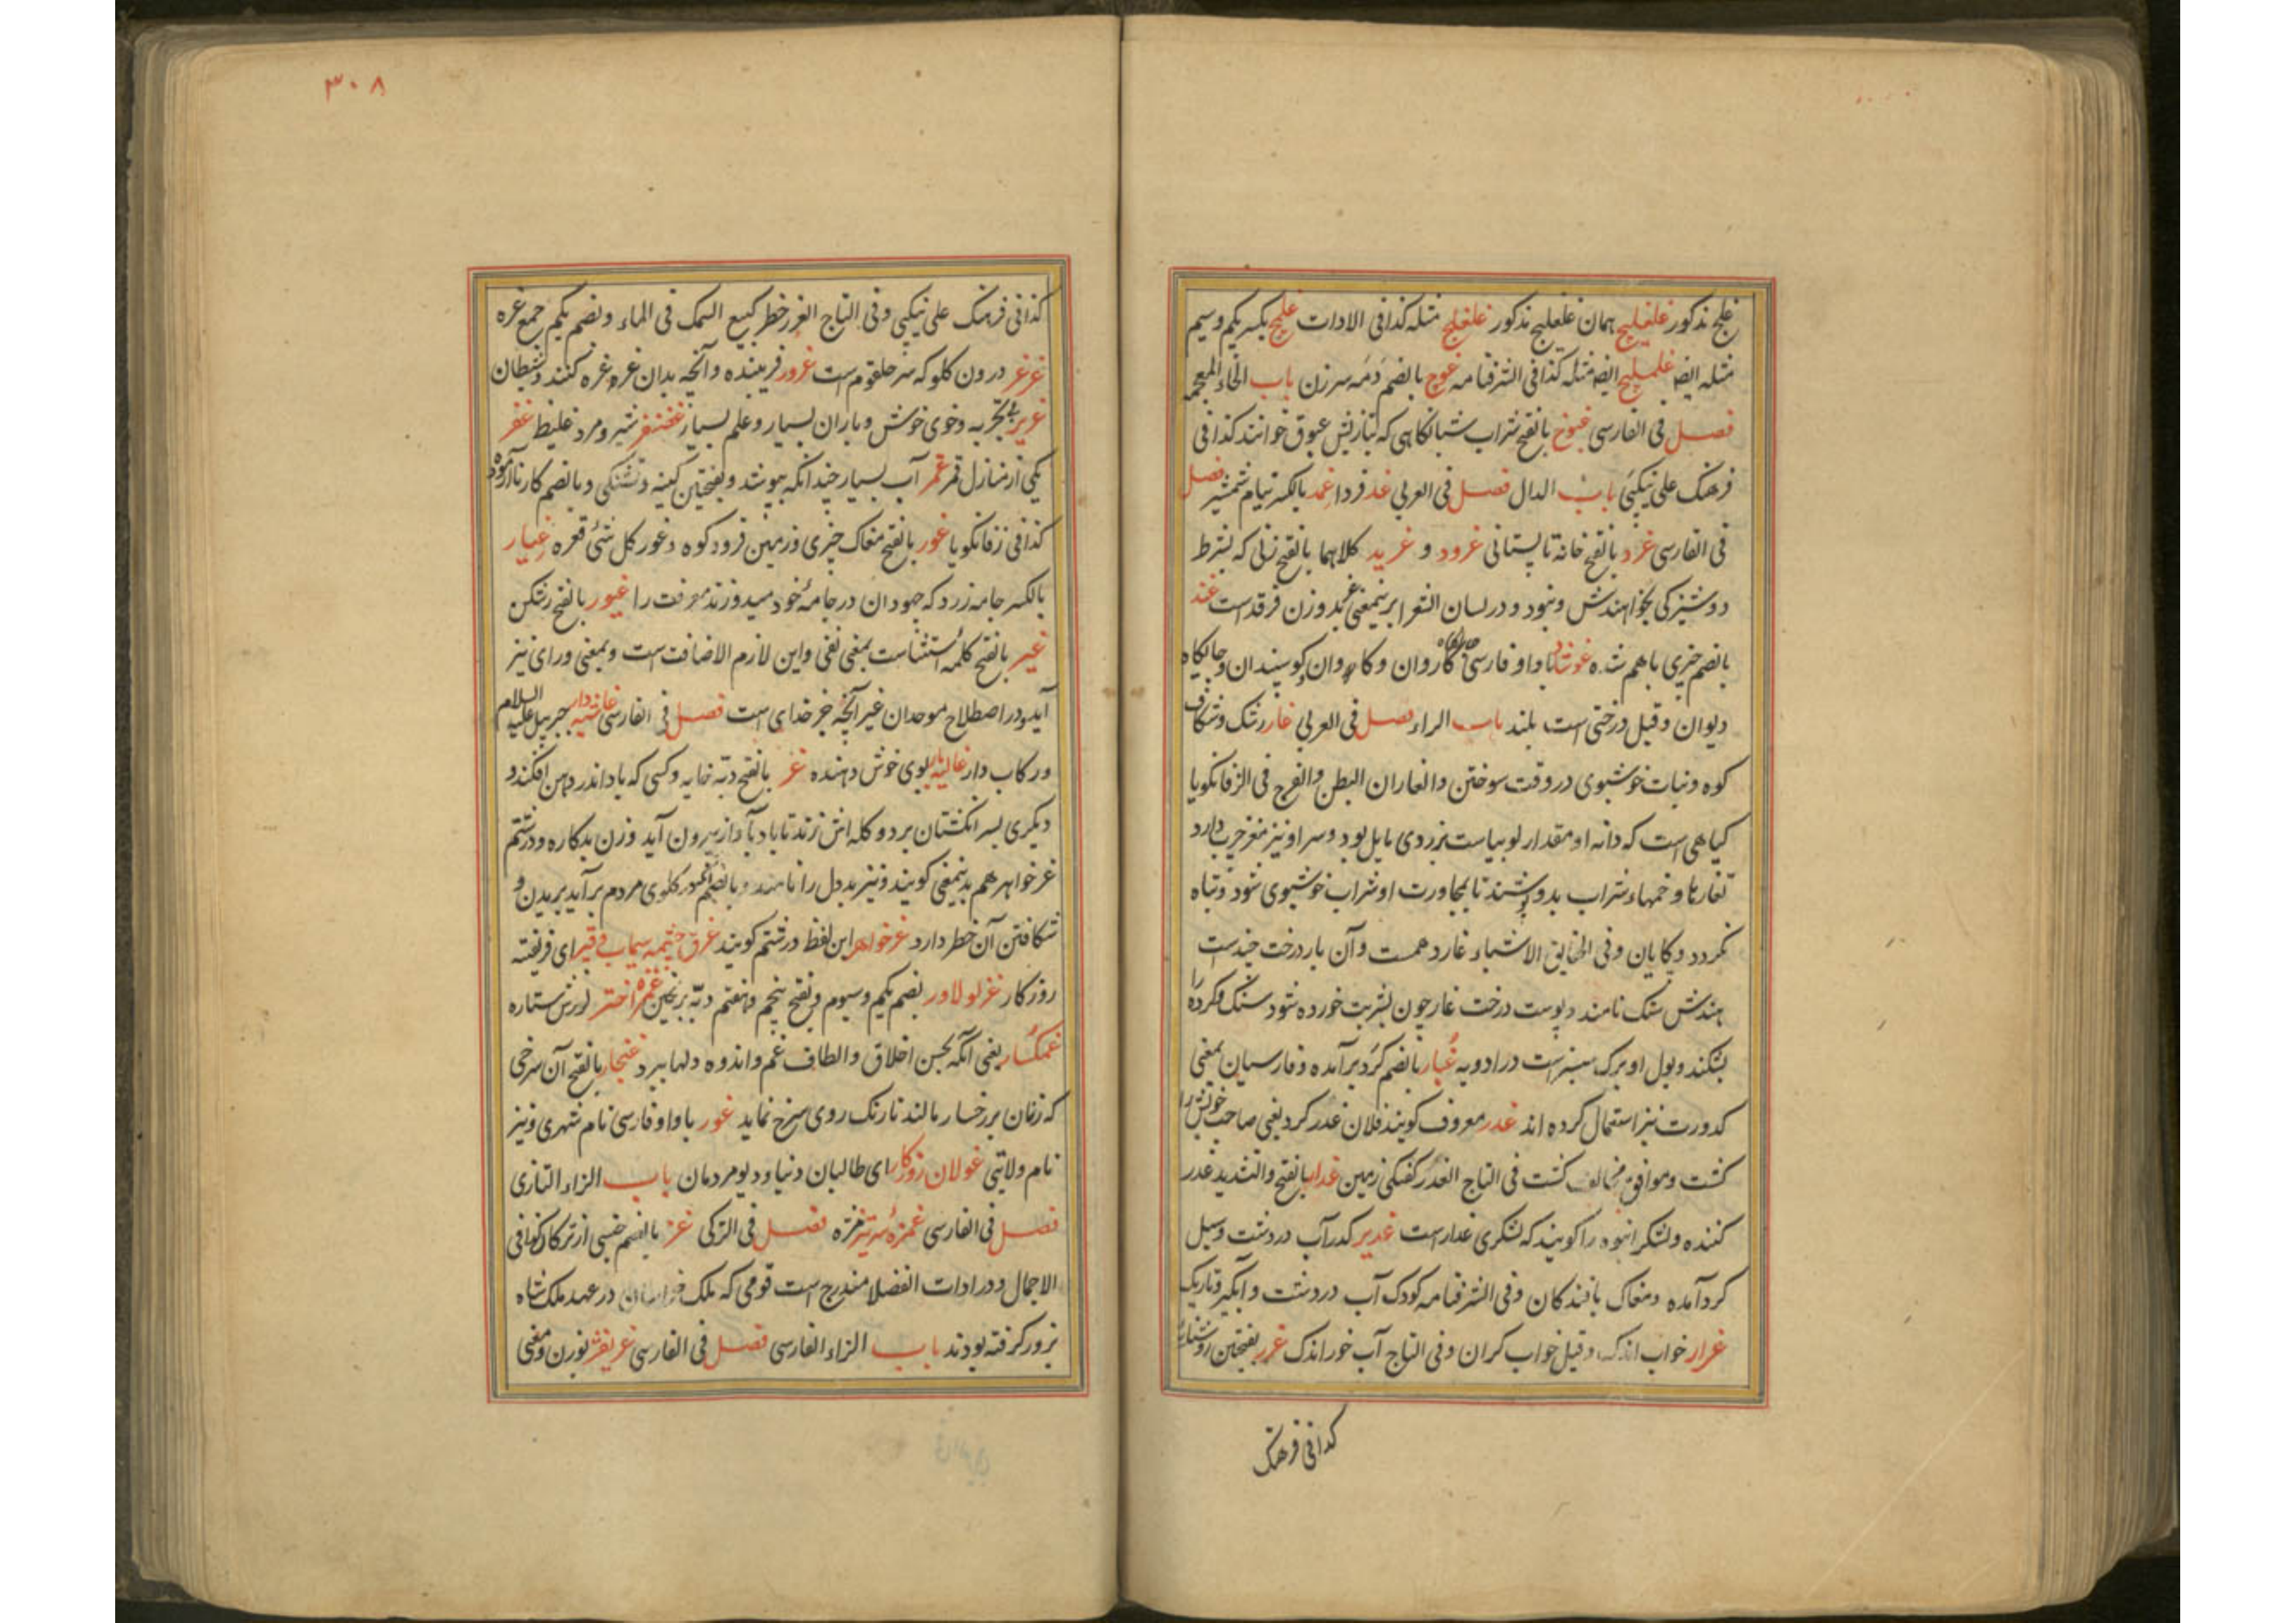 غلج مذکور غلغلیج همان غلغلیج مذکور غلغلج مثله کذا فی الادات غلمج بکسر یکم و سیم
مثله ایضا غلملیج ایضا مثله کذا فی الشرفنامه غوج بالضم سرزن باب الخاء المعجمه
فصل فی الفارسی غبوخ بالفتح شراب شبانگاهی که بتازیش غبوق خوانند کذا فی
فرهنک علی نیکبی باب الدال فصل فی العربی غد فردا غمد بالکسر نیام شمشیر فصل
فی الفارسی غرد بالفتح خانه تابستانی غرود و غرید کلاهما بالفتح زنی که بشرط
دوشیزکی بخواهندش و نبود و در لسان الشعرا برینمعنی غرند بروزن فرقد است غند
بالضم چیزی باهم شده غوشاد باواو فارسی جایگاه کاروان و کاروان کوسپندان و جایگاه
دیوان و قیل درختی است بلند باب الراء فصل فی العربی غار رشک و شکاف
کوه و نبات خوشبوی در وقت سوختن و الغاران البطن و الفرج فی الزفانکویا
کیاهی است که دانه او مقدار لوبیاست بزردی مایل بود و سر او نیز مغز چرب دارد
تغارها و خمهاء شراب بدو تا بمجاورت او شراب خوشبوی شود و تباه
نکردد و فی الاشیاء غار دهمست و آن بار درخت
هندش نامند و پوست درخت غار چون بشربت خورده شود سنک کرده را
بشکند و بول او برک سبزست در ادویه غبار بالضم کرد برآمده و فارسیان بمعنی
کدورت نیز استعمال کرده اند غدر معروف کویند فلان غدر کرد یعنی صاحب خویش را
کشت و موافق مخالف کشت فی التاج الغدر زمین غدار بالفتح و التشدید غدر
کننده و لشکر انبوه را کویند که لشکری غدار است غدیر کدر آب در دشت و سیل
کرد آمده و مغاک بافندکان و فی الشرفنامه کودک آب در دشت و آبکیر و تاریک
غرار خواب اندک و قیل خواب کران و فی التاج آب خور اندک غرر بفتحین
کذا فی فرهنک
۳۰۸
کذا فی فرهنک علی نیکبی و فی التاج الغرر خطر کبیع السمک فی الماء و بضم یکم جمع غره
غرغر درون کلو که سر حلقوم است غرور فریبنده و آنچه بدان غرغره کنند و شیطان
غریر بیتجربه و خوی خوش و باران بسیار و علم بسیار غضنفر شیر و مرد غلیظ غفر
یکی از منازل قمر غمر آب بسیار چندانکه بپوشد و بفتحین کینه و تشنکی و بالضم کار ناآزموده
کذا فی زفانکویا غور بالفتح مغاک چیزی و زمین فرود کوه و غور کل شئ قعره غیار
بالکسر جامه زرد که جهودان در جامه خود میدوزند معرفت را غیور بالفتح رشکن
غیر بالفتح کلمه استثناست بمعنی نفی و این لازم الاضافت است و بمعنی ورای نیز
آید و در اصطلاح موحدان غیر آنچه جز خدای است فصل فی الفارسی غاشیه دار جبریل علیه السلام
و رکاب دار غالیه بار بوی خوش دهنده غر بالفتح دبه خایه و کسی که باد اندر دهن افکند و
دیکری بسر انکشتان بر دو کله اش زند تا باد بآواز بیرون آید و زن بدکاره و در رستم
غر خواهر هم بدینمعنی کویند و نیز بددل را نامند و بالضم کلوی مردم برآید بریدن و
شکافتن آن خطر دارد غر خواهر این لفظ در رستم کویند غرق چشمه سیماب و قیر ای فریفته
روزکار غرلولاور بضم یکم و سیوم و بفتح پنجم و هفتم غمزه اختر لرزش ستاره
غمکسار یعنی آنکه بحسن اخلاق و الطاف غم و اندوه دلها ببرد غنجار بالفتح آن سرخی
که زنان بر رخسار مالند تا رنک روی سرخ نماید غور باواو فارسی نام شهری و نیز
نام ولایتی غولان روزکار ای طالبان دنیا و دیو مردمان باب الزاء التازی
فصل فی الفارسی غمزه سر تیز مژه فصل فی الترکی غز بالضم جنسی از ترکان کذا فی
الاجمال و در ادات الفضلا مندرج است قومی که ملک خراسان در عهد ملک شاه
بزور کرفته بودند باب الزاء الفارسی فصل فی الفارسی غریفژ بوزن و معنی